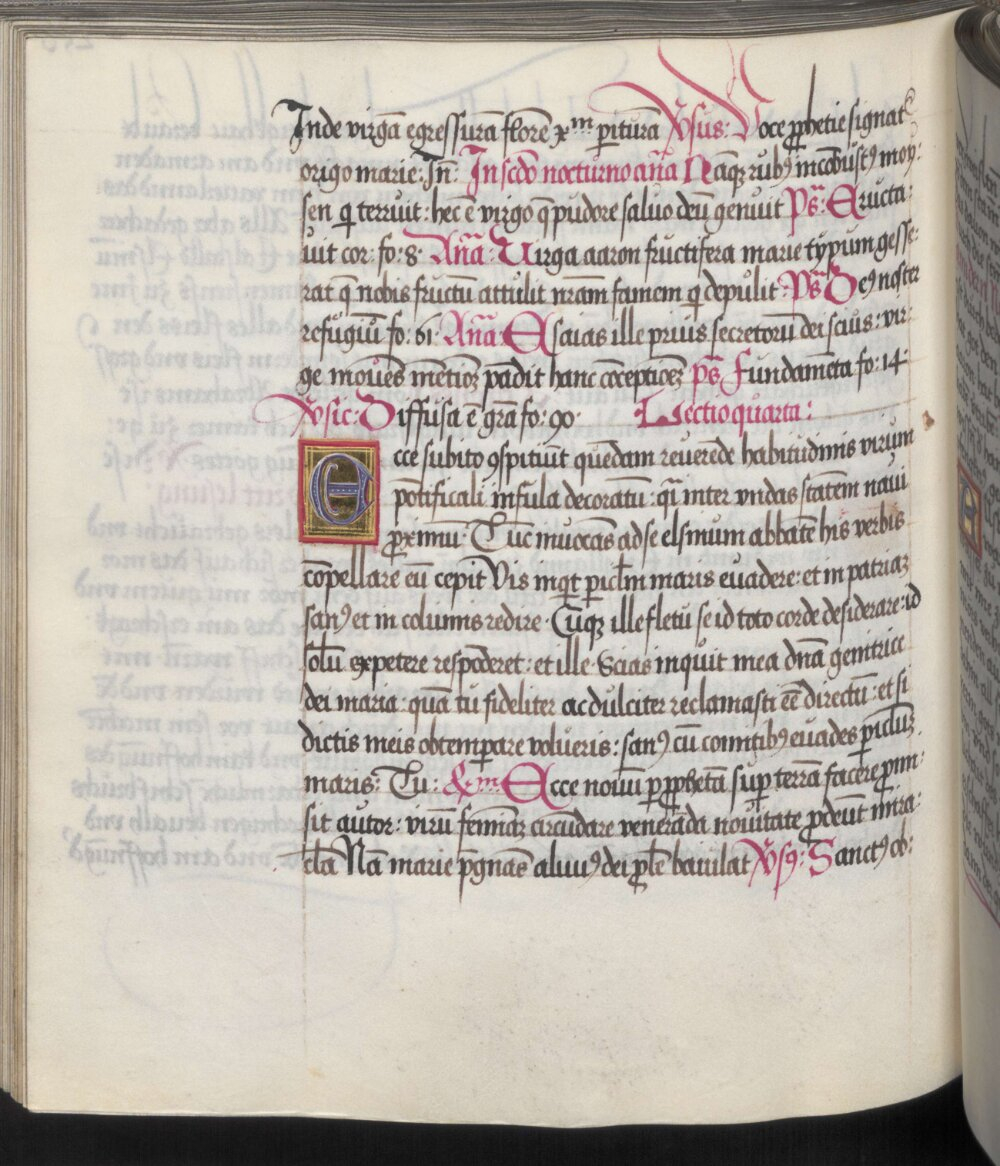 Inde virgā egressurā florē xᵐ pariturā Versus: Voce prophetie signatᵉ
origo marie: In: In scdo nocturno aña Naqz rubꝰ incōbustꝰ moy:
sen q̄ terruit: hec ē virgo q̄ pudore saluo deū genuit Ps: Eructa:
uit cor: fo: 8· Aña: Virga aaron fructifera marie typum gesse:
rat q̄ nobis fructū attulit nrām famem q̄ depulit· Ps: Deꝰ noster
refugiū: fo: 61· Aña: Esaias ille prius secretorū dei scius: vir:
ge mouēs mētioz pādit hanc cōceptioēz Ps: Fundamēta fo: 14·
Vsic: Diffusa ē gra fo: 90· Lectio quarta:
Ecce subito ꝯspitiūt quēdam reuerēde habitudinis virum
pōtificali infula decoratū: qui inter vndas statem naui
proximū: Tūc inuocās ad se elsinum abbatē his verbis
cōpellare eū cepit Vis inqt piclm maris euadere: et in patriaz
sanꝰ et in columis redire· Cūqz ille fletu se id toto corde desiderare: id
solū expetere respōderet: et ille· Scias inquit mea dnā genitrice
dei maria: quā tu fideliter ac dulciter reclamasti eē directū: et si
dictis meis obtempare volueris: sanꝰ cū comitibꝰ euades piclūz
maris: Tu: Rm· Ecce nouū p prophetā sup terrā facere prom:
sit autor: virū feminaz circūdare venerāda nouitate prodeūt mira:
cla Nā marie pgnās aluuꝰ dei prole baiulat Vsꝰ: Sanctꝰ ob: